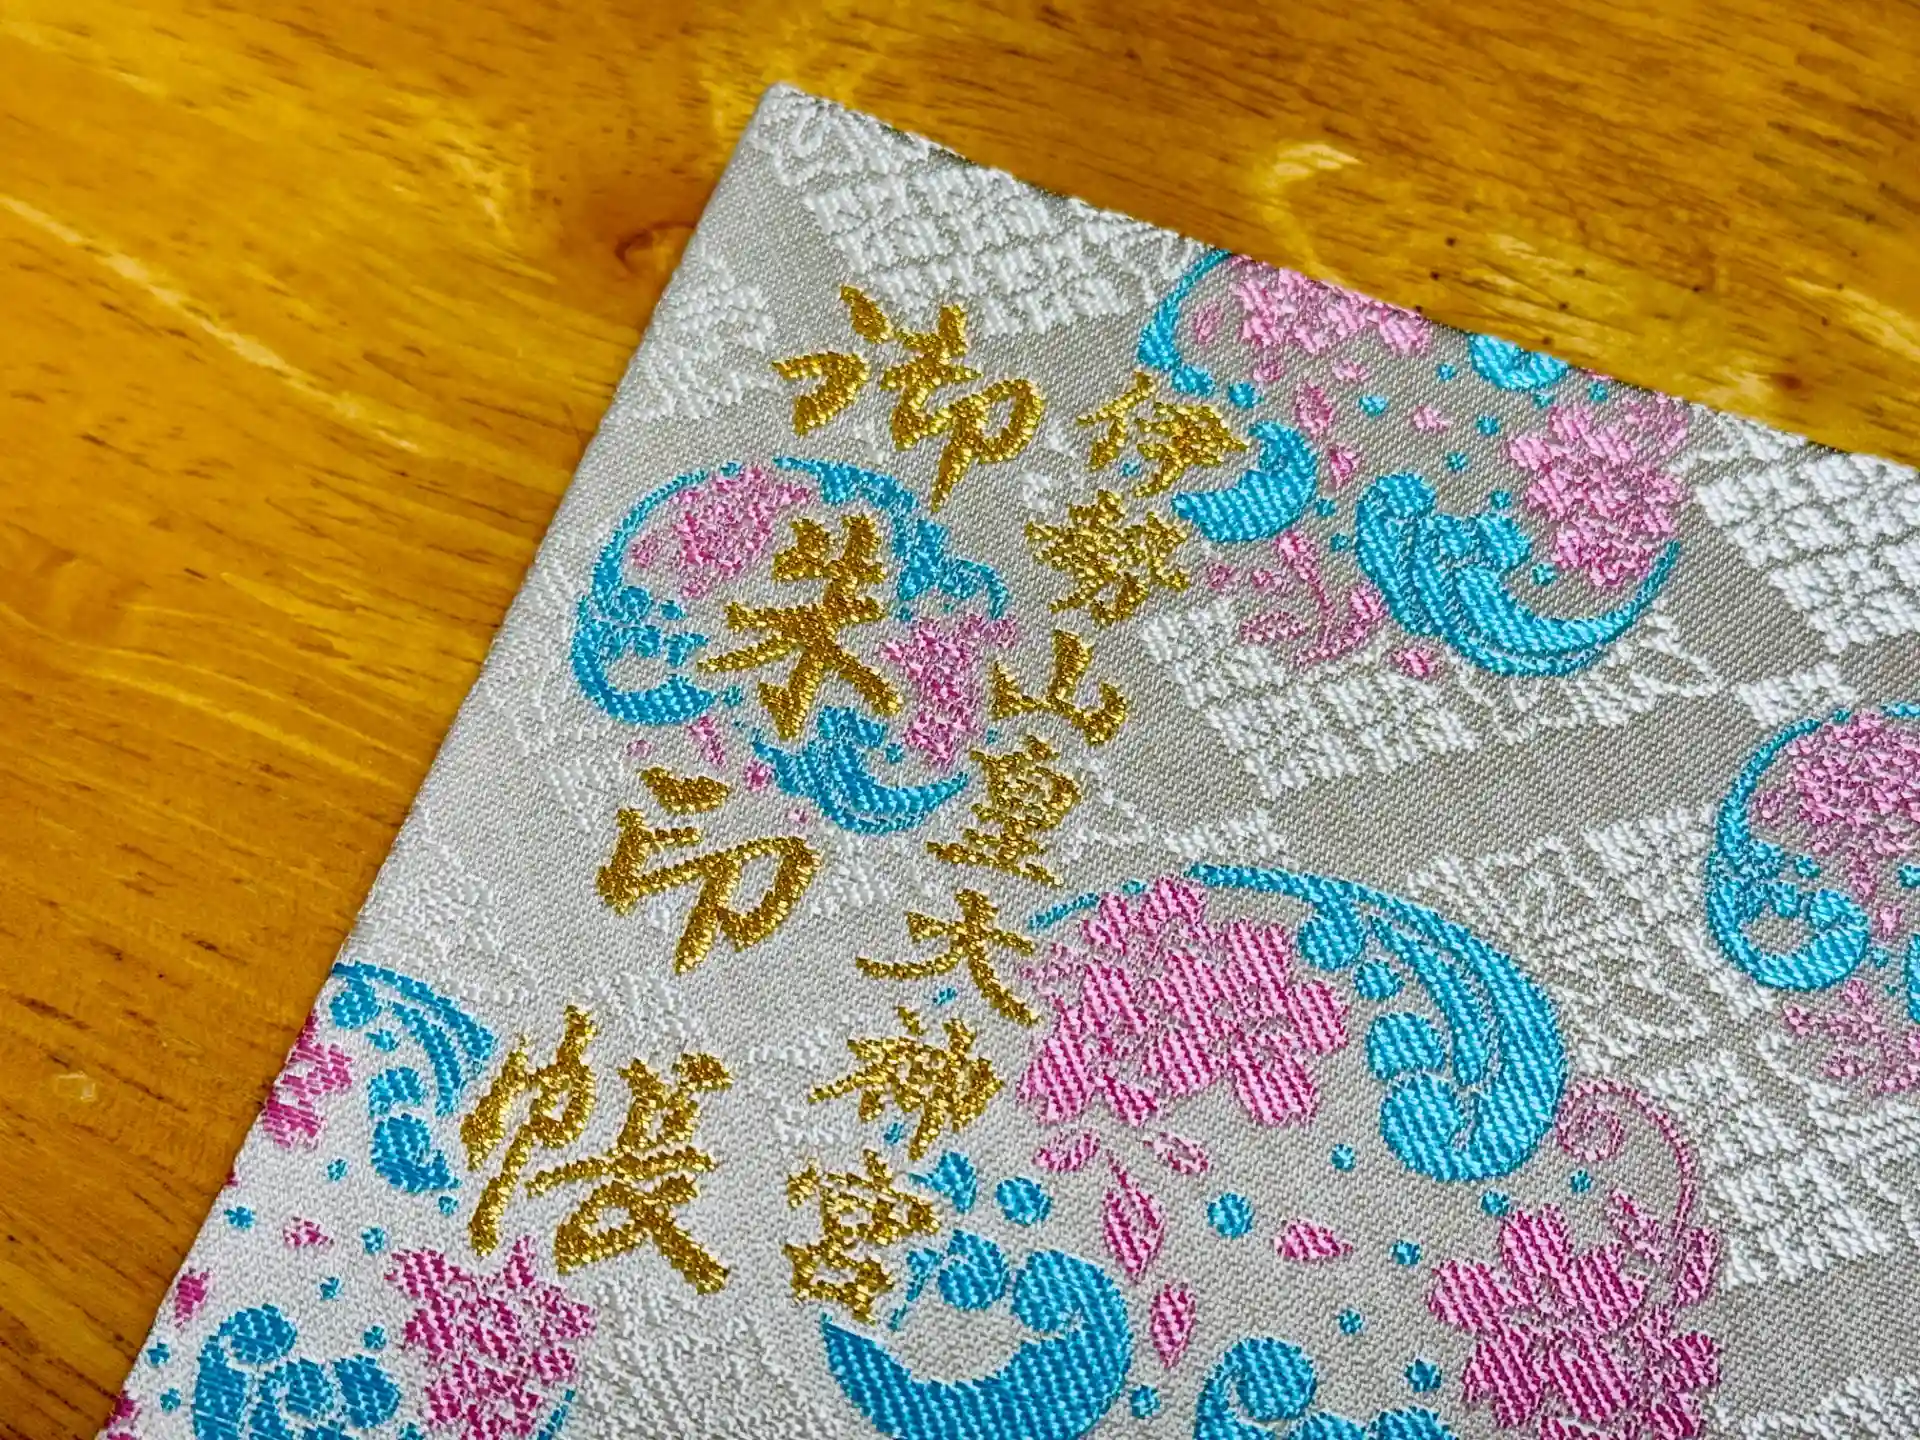 伊勢山皇大神宮
御朱印帳